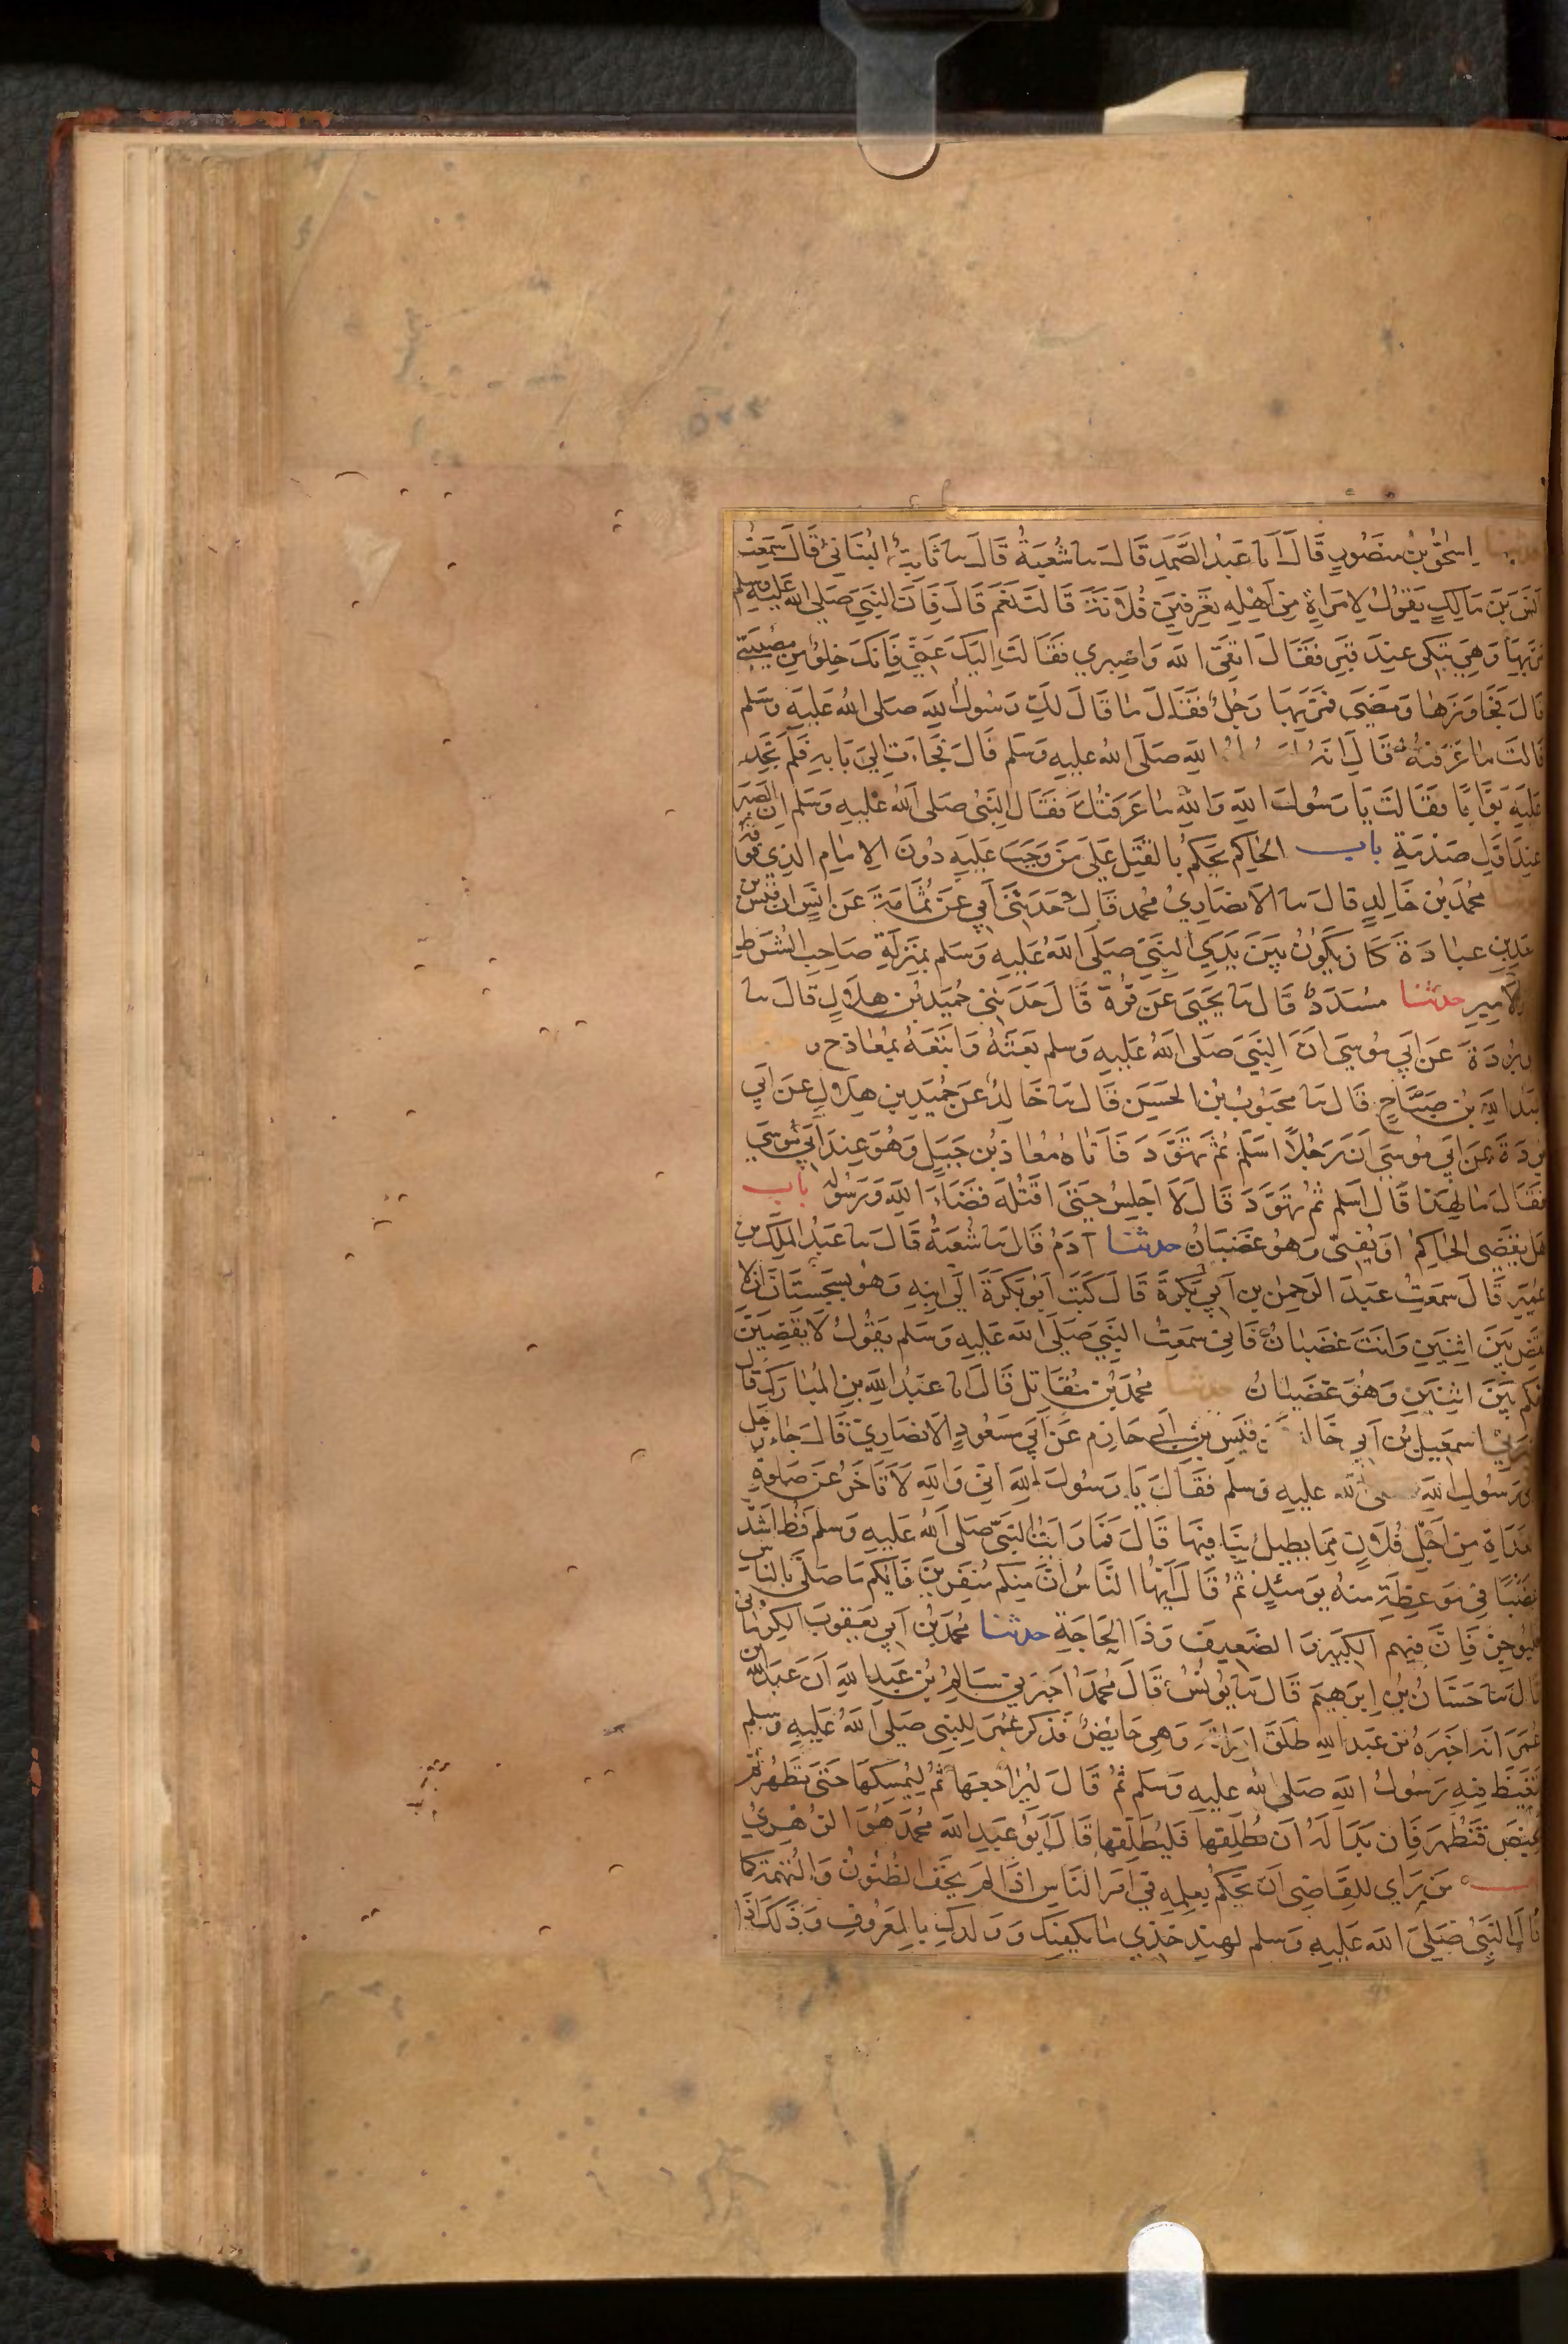 حدثنا اسحق بن منصور قال انا عبد الصمد قال نا شعبة قال نا ثابت البناني قال سمعت
انس بن مالك يقول لامراة من اهله تعرفين فلانة قالت نعم قال فان النبي صلى الله عليه وسلم
مر بها وهي تبكي عند قبر فقال اتقي الله واصبري فقالت اليك عني فانك خلو من مصيبتي
قال فجاوزها ومضى فمر بها رجل فقال ما قال لك رسول الله صلى الله عليه وسلم
قالت ما عرفته قال انه الله صلى الله عليه وسلم قال فجاءت الى بابه فلم تجد
عليه بوابا فقالت يا رسول الله والله ما عرفتك فقال النبي صلى الله عليه وسلم ان الصبر
عند اول صدمة باب الحاكم يحكم بالقتل على من وجب عليه دون الامام الذي فوقه
محمد بن خالد قال نا الانصاري محمد قال حدثني ابي عن ثمامة عن انس ان قيس بن
سعد بن عبادة كان يكون بين يدي النبي صلى الله عليه وسلم بمنزلة صاحب الشرط
الامير حدثنا مسدد قال نا يحيى عن قرة قال حدثني حميد بن هلال قال نا
بردة عن ابي موسى ان النبي صلى الله عليه وسلم بعثه واتبعه بمعاذ ح و
عبد الله بن صباح قال نا محبوب بن الحسين قال نا خالد عن حميد بن هلال عن ابي
بردة عن ابي موسى ان رجلا اسلم ثم تهود فاتاه معاذ بن جبل وهو عند ابي موسى
فقال ما لهذا قال اسلم ثم تهود قال لا اجلس حتى اقتله قضاء الله ورسوله باب
هل يقضي الحاكم او يفتي وهو غضبان حدثنا آدم قال نا شعبة قال نا عبد الملك بن
عمير قال سمعت عبد الرحمن بن ابي بكرة قال كتب ابو بكرة الى ابنه وهو بسجستان ان لا
تقض بين اثنين وانت غضبان فاني سمعت النبي صلى الله عليه وسلم يقول لا يقضين
حكم بين اثنين وهو غضبان حدثنا محمد بن مقاتل قال انا عبد الله بن المبارك قال
اسمعيل بن ابي خالد عن قيس بن ابي حازم عن ابي مسعود الانصاري قال جاء رجل
الى رسول الله صلى الله عليه وسلم فقال يا رسول الله اني والله لاتاخر عن صلوة
الغداة من اجل فلان مما يطيل بنا فيها قال فما رايت النبي صلى الله عليه وسلم قط اشد
غضبا في موعظة منه يومئذ ثم قال ايها الناس ان منكم منفرين فايكم ما صلى بالناس
فليوجز فان فيهم الكبير والضعيف وذا الحاجة حدثنا محمد بن ابي يعقوب الكرماني
قال نا حسان بن ابرهيم قال نا يونس قال محمد اخبرني سالم بن عبد الله ان عبد الله بن
عمر انه اخبره بن عبد الله طلق امراته وهي حايض فذكر عمر للنبي صلى الله عليه وسلم
فتغيظ فيه رسول الله صلى الله عليه وسلم ثم قال ليراجعها ثم ليمسكها حتى تطهر ثم
تحيض فتطهر فان بدا له ان يطلقها فليطلقها قال ابو عبد الله محمد هو الزهري
من راى للقاضي ان يحكم بعلمه في امر الناس اذا لم يخف الظنون والتهمة كما
قال النبي صلى الله عليه وسلم لهند خذي ما يكفيك وولدك بالمعروف وذلك اذا